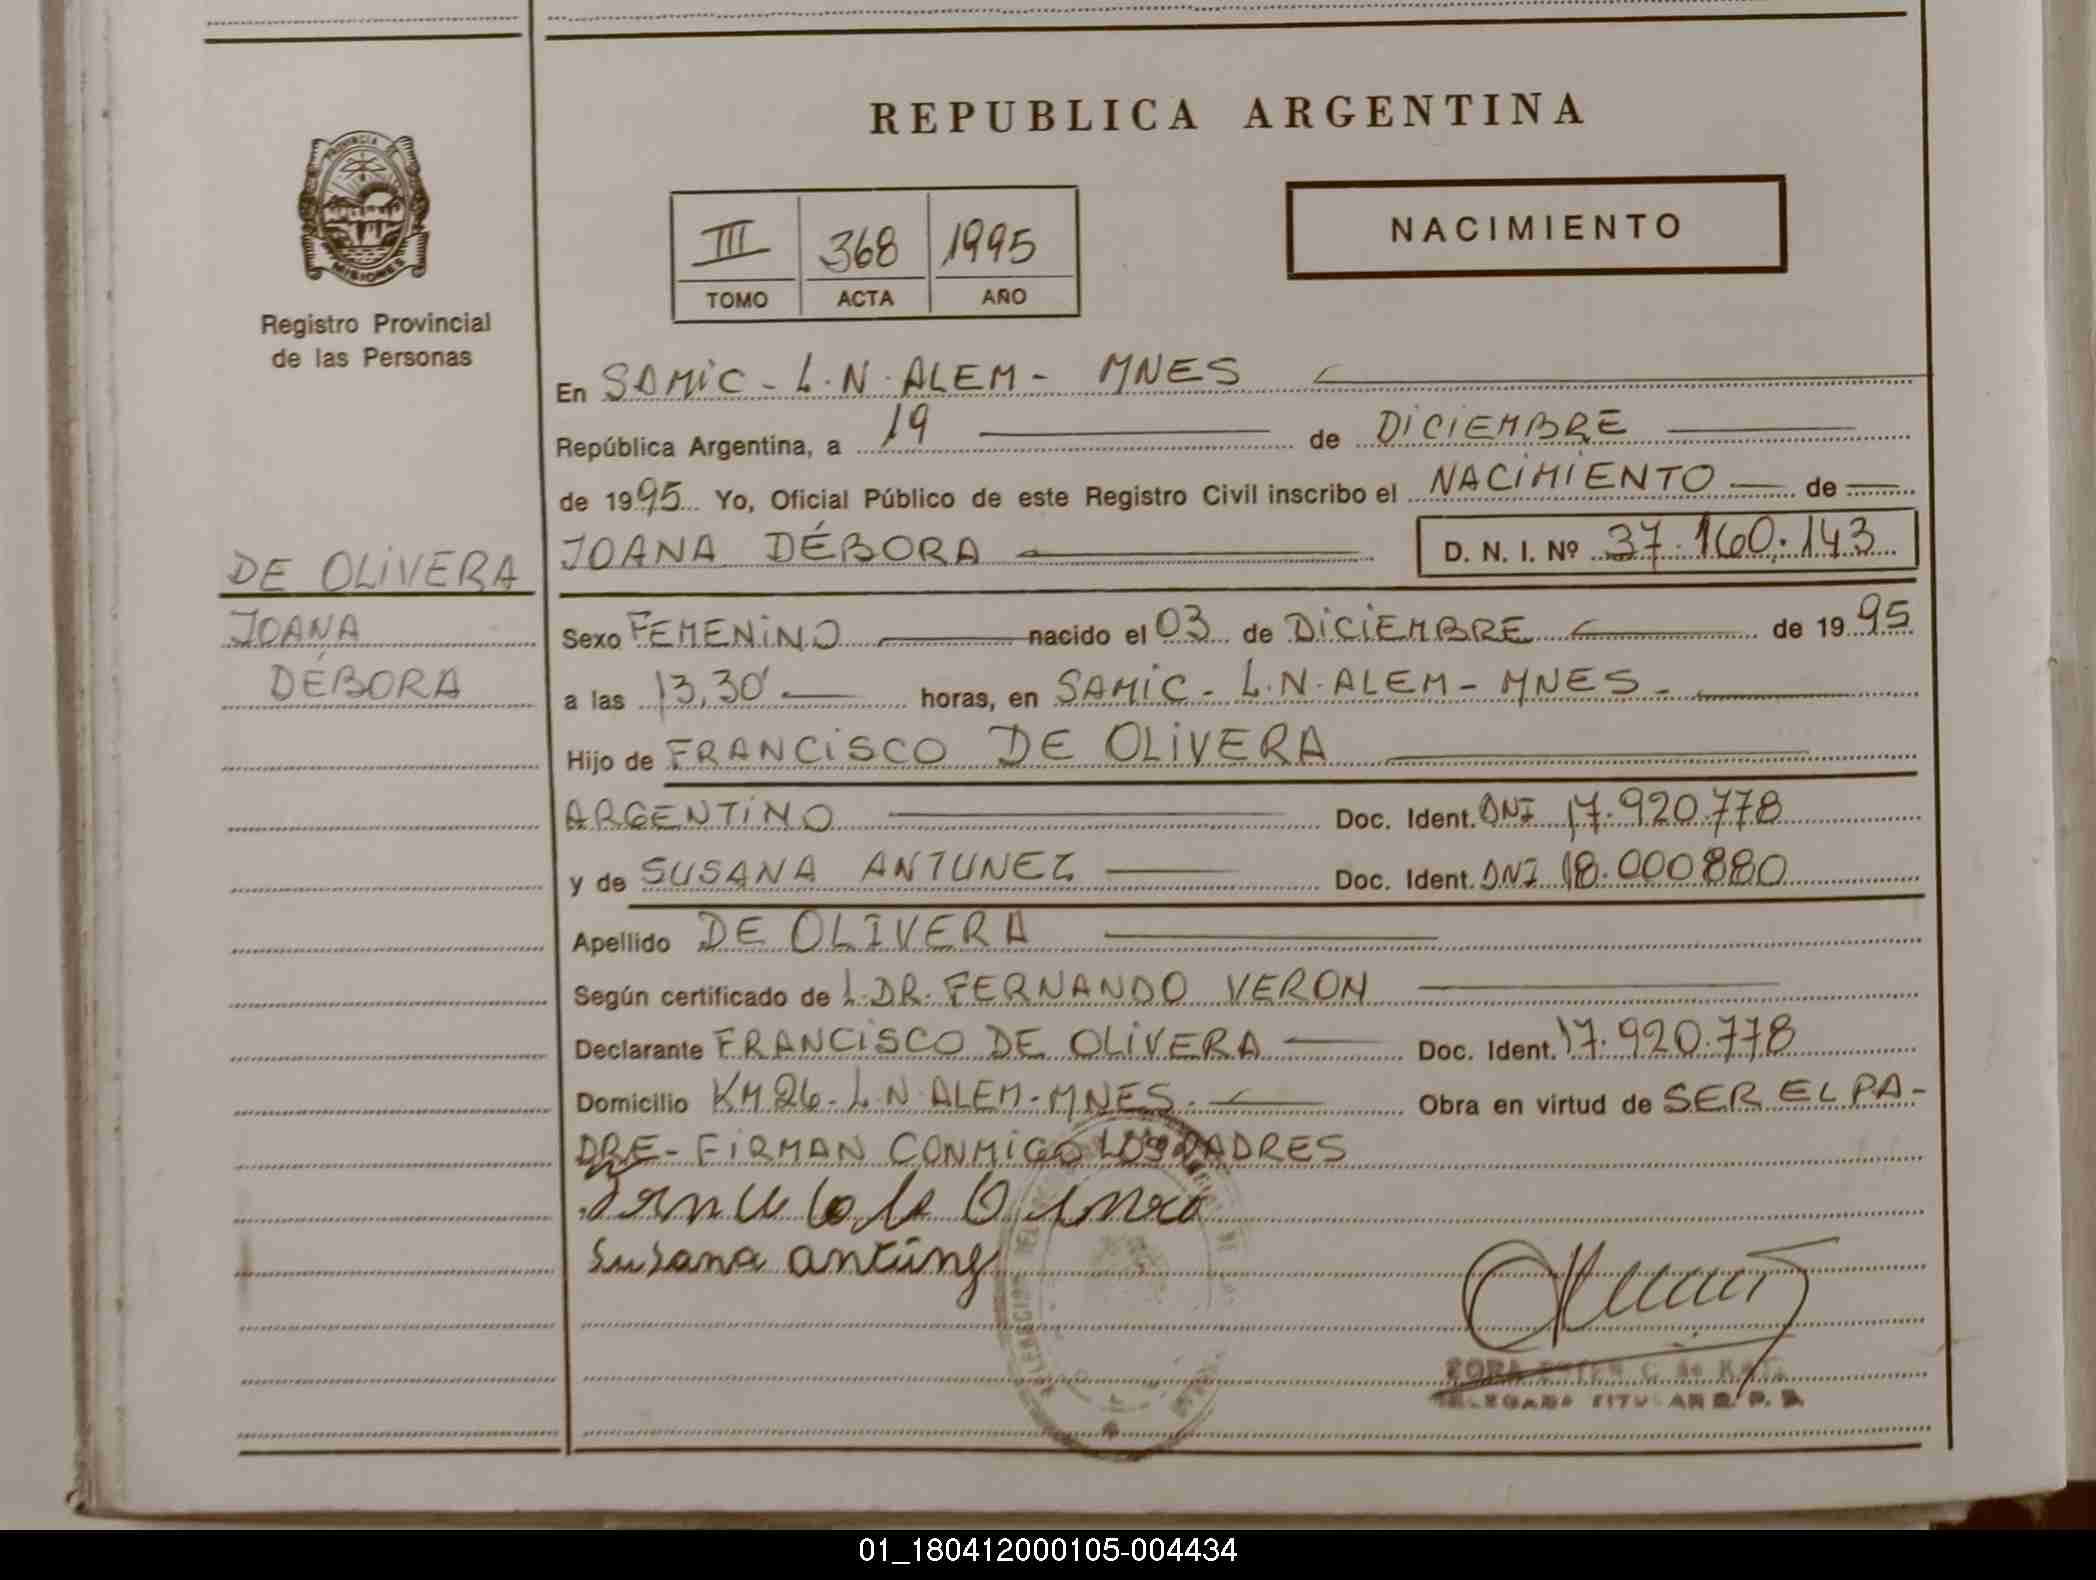 REPUBLICA ARGENTINA
PROVINCIA DE
MISIONES
Registro Provincial
de las Personas
III 368 1995
TOMO ACTA AÑO
NACIMIENTO
En SAMIC - L.N. ALEM - MNES
República Argentina, a 19 de DICIEMBRE
de 1995 Yo, Oficial Público de este Registro Civil inscribo el NACIMIENTO de
JOANA DÉBORA D. N. I. Nº 37.160.143
DE OLIVERA
JOANA
DÉBORA
Sexo FEMENINO nacido el 03 de DICIEMBRE de 1995
a las 13,30' horas, en SAMIC - L.N. ALEM - MNES -
Hijo de FRANCISCO DE OLIVERA
ARGENTINO Doc. Ident. DNI 17.920.778
y de SUSANA ANTUNEZ Doc. Ident. DNI 18.000880
Apellido DE OLIVERA
Según certificado de L. DR. FERNANDO VERON
Declarante FRANCISCO DE OLIVERA Doc. Ident. 17.920.778
Domicilio KM 26 - L.N. ALEM - MNES. Obra en virtud de SER EL PA-
DRE - FIRMAN CONMIGO LOS PADRES
Susana Antúnez
TITULAR R. P. P.
01_180412000105-004434